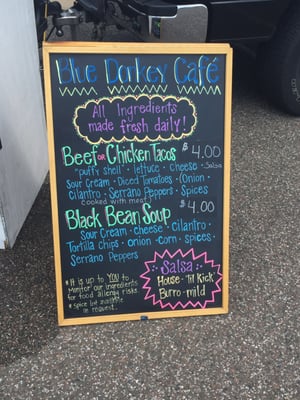 Blue Donkey Café
All Ingredients
made fresh daily!
Beef or Chicken Tacos $4.00
"puffy shell" · lettuce · cheese · salsa
Sour Cream · Diced Tomatoes · (Onion ·
cilantro · Serrano Peppers · Spices
cooked with meat)
Black Bean Soup $4.00
Sour Cream · cheese · cilantro ·
Tortilla Chips · onion · corn · spices ·
Serrano Peppers
* It is up to YOU to
Monitor our ingredients
for food allergy risks.
* Spice list available
on request.
Salsa
House - "lil Kick"
Burro - mild